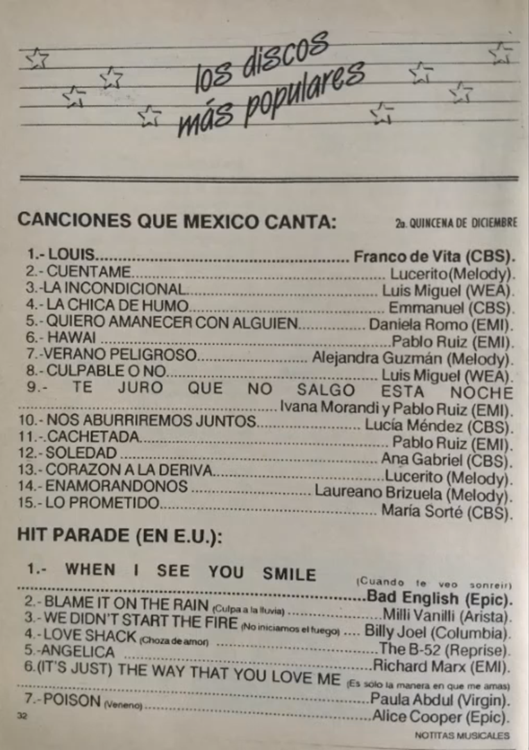 los discos
más populares
CANCIONES QUE MEXICO CANTA: 2a. QUINCENA DE DICIEMBRE
1.- LOUIS.......... Franco de Vita (CBS).
2.- CUENTAME.......... Lucerito(Melody).
3.-LA INCONDICIONAL.......... Luis Miguel (WEA).
4.- LA CHICA DE HUMO.......... Emmanuel (CBS).
5.- QUIERO AMANECER CON ALGUIEN.......... Daniela Romo (EMI).
6.- HAWAI ..........Pablo Ruiz (EMI).
7.-VERANO PELIGROSO.......... Alejandra Guzmán (Melody).
8.- CULPABLE O NO.......... Luis Miguel (WEA).
9.- TE JURO QUE NO SALGO ESTA NOCHE
.......... Ivana Morandi y Pablo Ruiz (EMI).
10.- NOS ABURRIREMOS JUNTOS.......... Lucía Méndez (CBS).
11.-.CACHETADA.......... Pablo Ruiz (EMI).
12.- SOLEDAD .......... Ana Gabriel (CBS).
13.- CORAZON A LA DERIVA.......... Lucerito (Melody).
14.- ENAMORANDONOS .......... Laureano Brizuela (Melody).
15.- LO PROMETIDO.......... María Sorté (CBS).
HIT PARADE (EN E.U.):
1.- WHEN I SEE YOU SMILE (Cuando te veo sonreir)
..........Bad English (Epic).
2.- BLAME IT ON THE RAIN (Culpa a la lluvia) .......... Milli Vanilli (Arista).
3.- WE DIDN'T START THE FIRE (No iniciamos el fuego) .... Billy Joel (Columbia).
4.-LOVE SHACK (Choza de amor) ..........The B-52 (Reprise).
5.-ANGELICA ..........Richard Marx (EMI).
6.(IT'S JUST) THE WAY THAT YOU LOVE ME (Es sólo la manera en que me amas)
.......... Paula Abdul (Virgin).
7.- POISON (Veneno).......... Alice Cooper (Epic).
32
NOTITAS MUSICALES